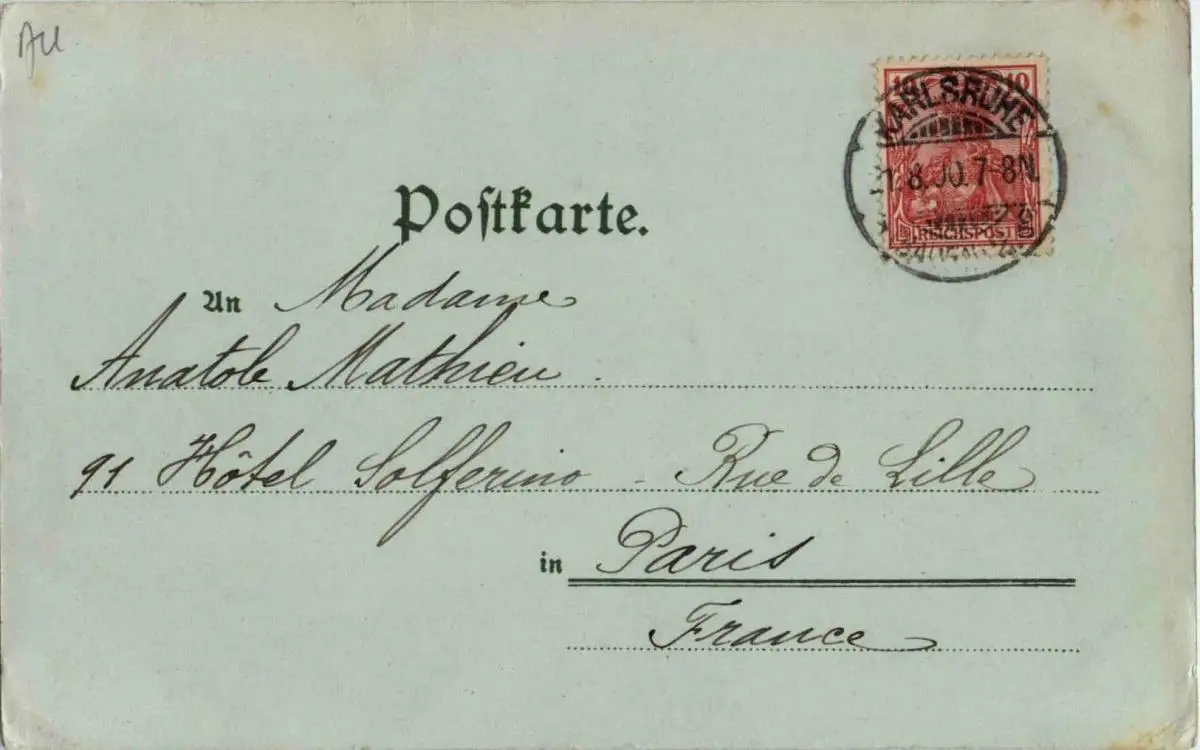 AU
10 10
KARLSRUHE
1.8.00.7-8N.
REICHSPOST
Postkarte.
An Madame
Anatole Mathieu.
91 Hôtel Solferino - Rue de Lille
in Paris
France